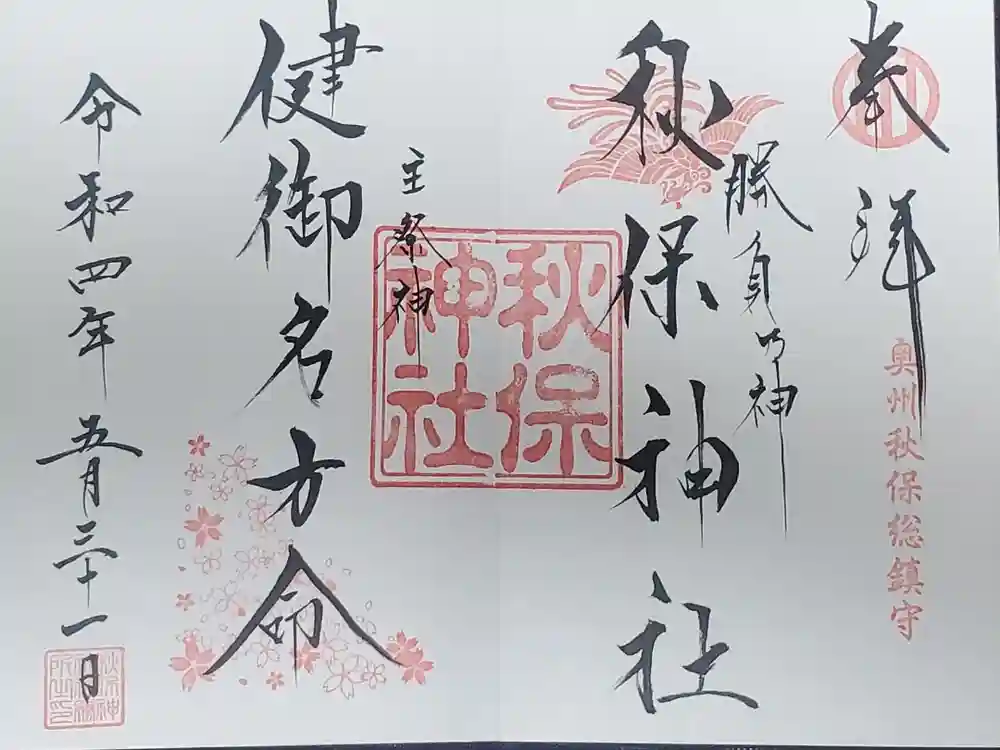 奉拝
奥州秋保総鎮守
勝負の神
秋保神社
秋保
神社
主祭神
健御名方命
令和四年五月三十一日